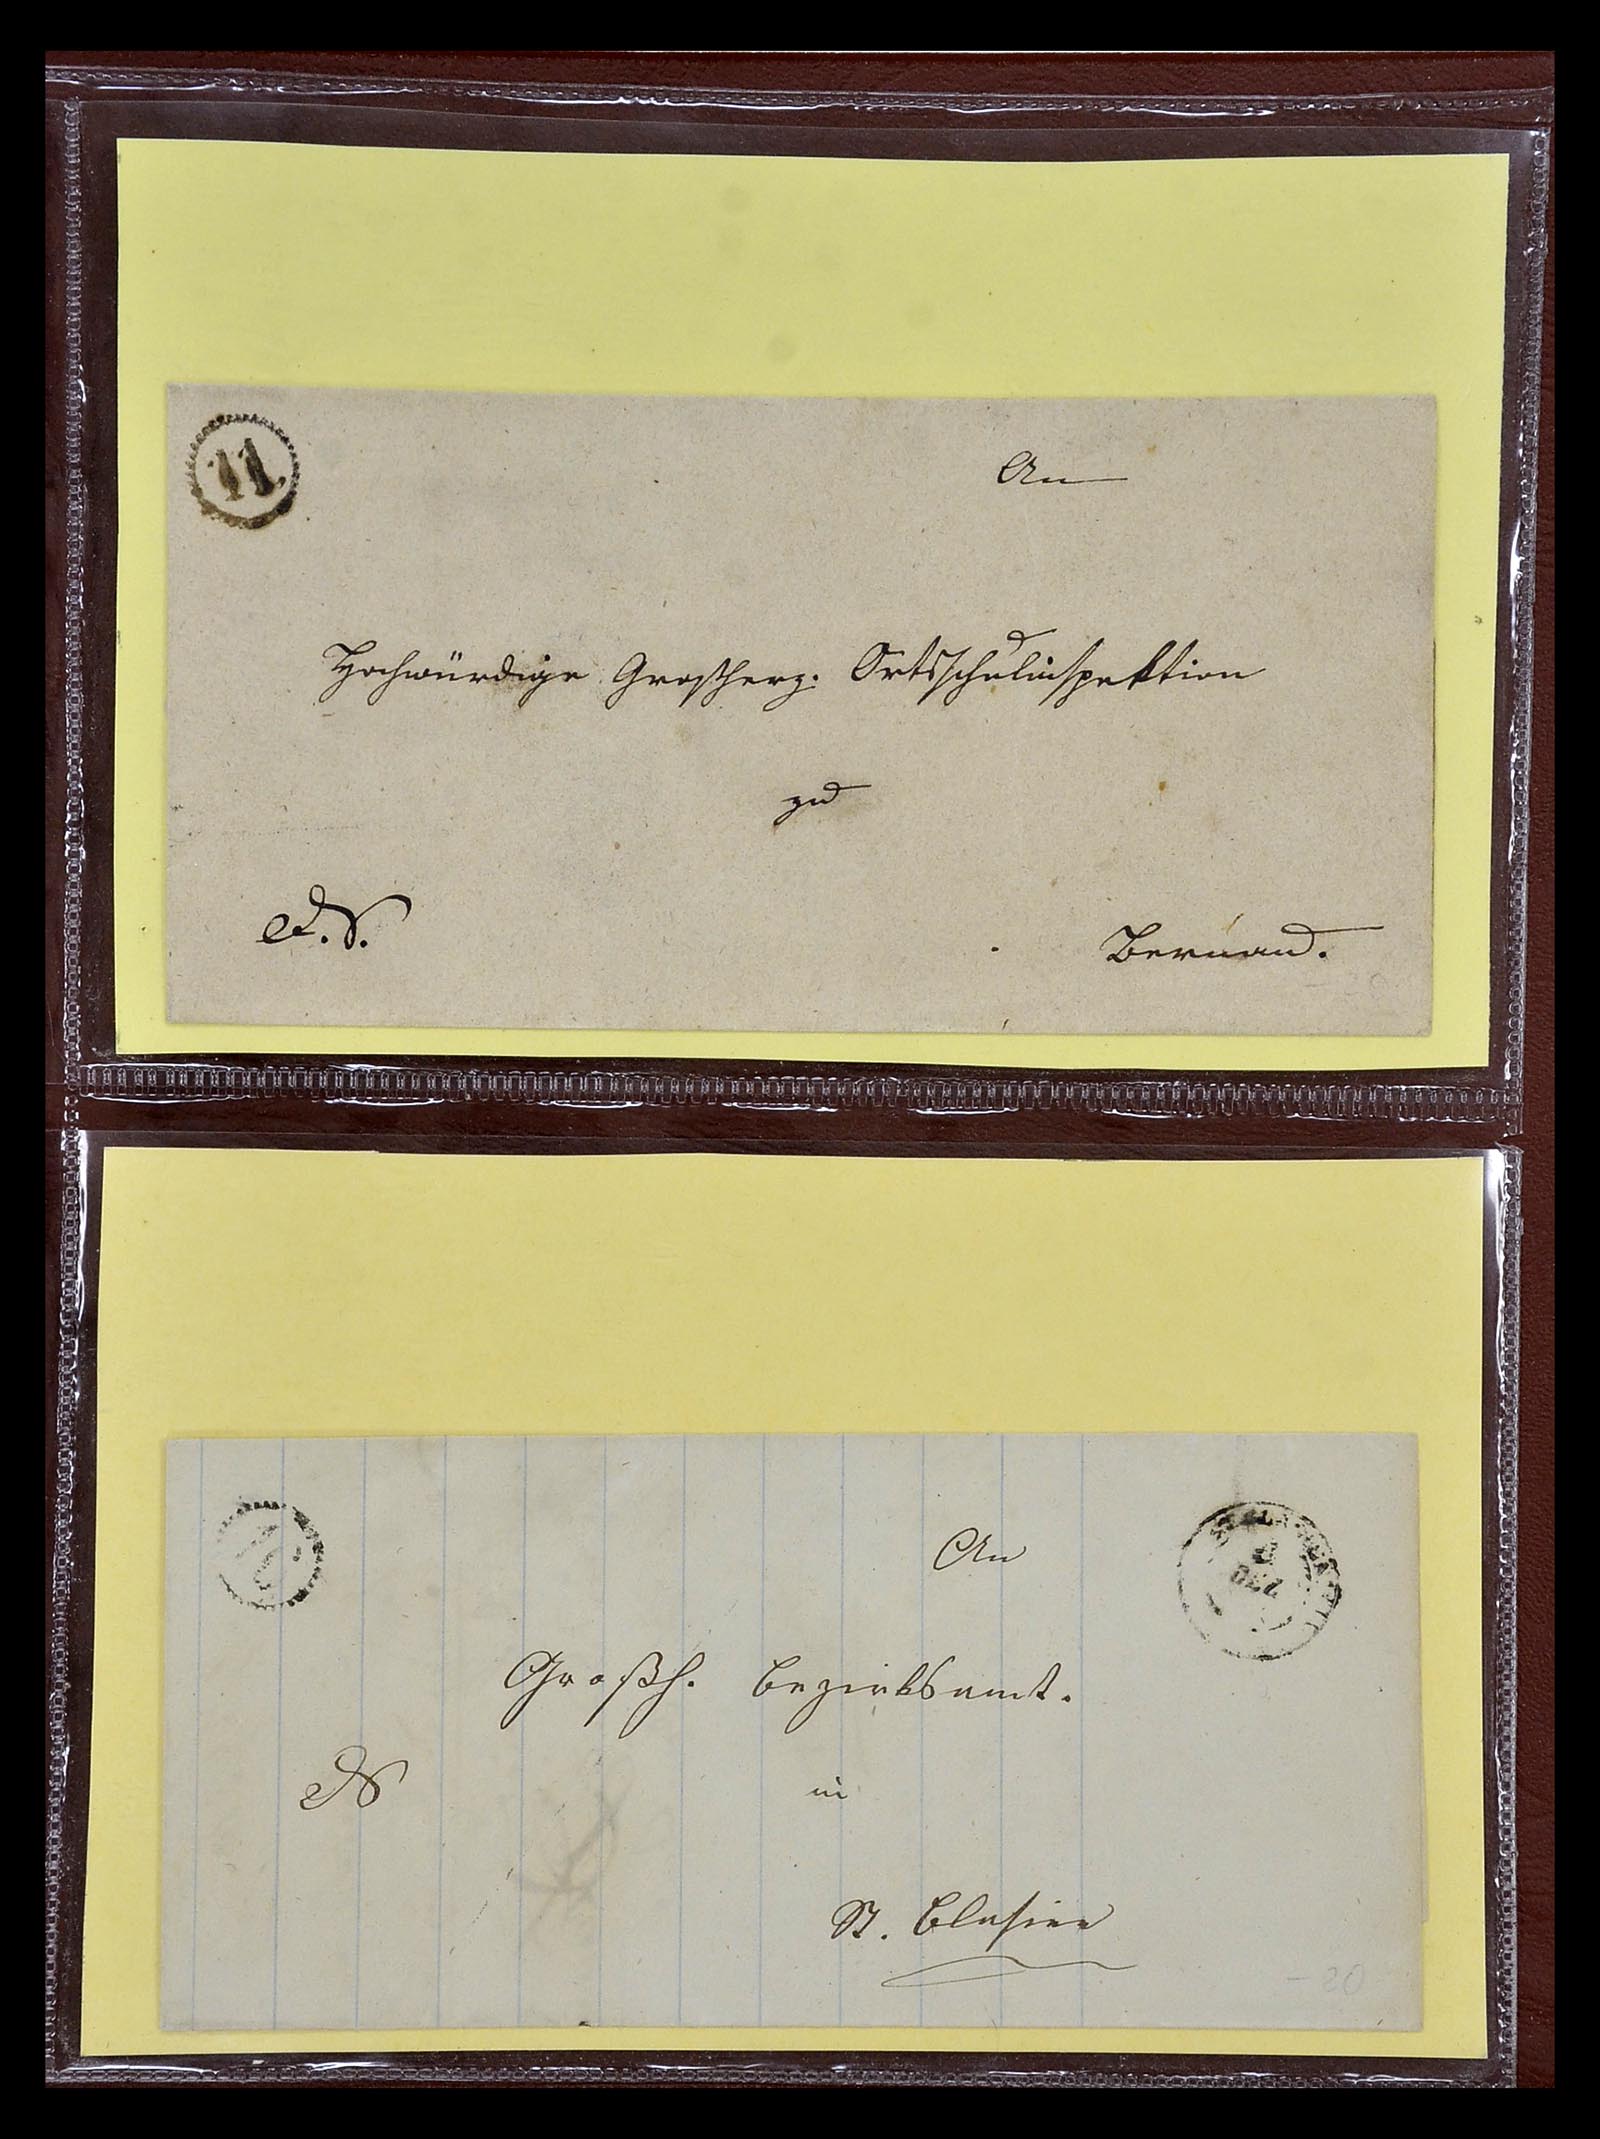 11.
An
Hochwürdige Großherz. Ortsschulinspektion
zu
D.S.
Bernau.
An
Großh. Bezirksamt.
DS
in
St. Blasien
-20